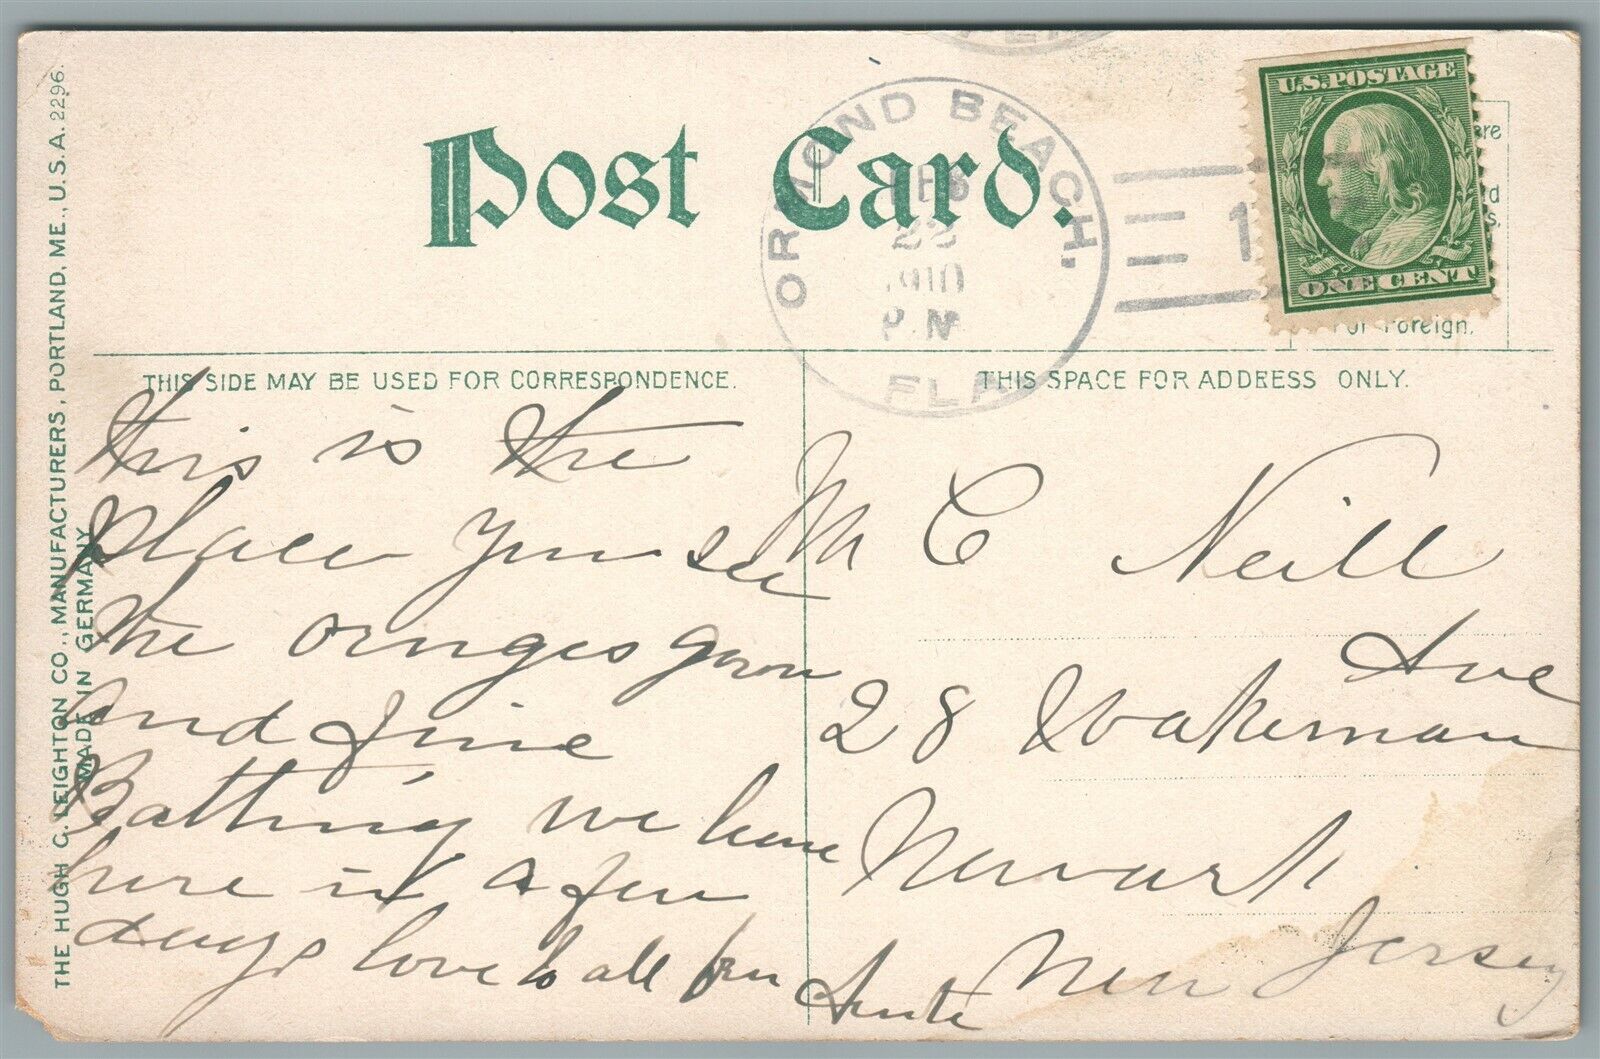 THE HUGH C. LEIGHTON CO., MANUFACTURERS, PORTLAND, ME., U.S.A. 2296.
MADE IN GERMANY
Post Card.
ORMOND BEACH,
FEB
22
1910
P.M
FLA.
1
U.S. POSTAGE
ONE CENT
For Foreign.
THIS SIDE MAY BE USED FOR CORRESPONDENCE.
this is the
place you see
the oringes grow
and fine
Bathing we leave
here in a few
days love to all from
Ante
THIS SPACE FOR ADDRESS ONLY.
M C Neill
28 Wakeman Ave
Newark
New Jersey